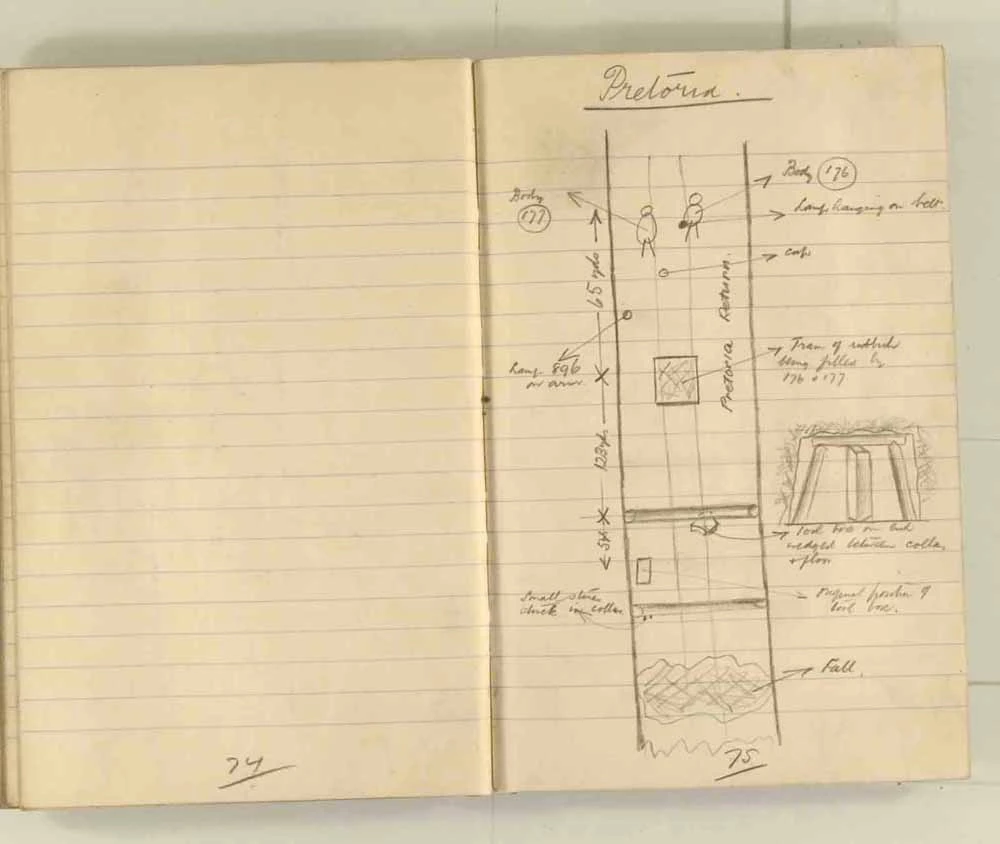 Pretoria.
Body
177
Body 176
Lamp hanging on belt.
cap
65 yds
Pretoria Return.
Lamp 896
on arm
Tram of rubbish
being filled by
176 & 177
123 yds
Tool box on end
wedged between collar
& floor
5x
Small stones
stuck in collar
original position of
tool box.
Fall.
74
75